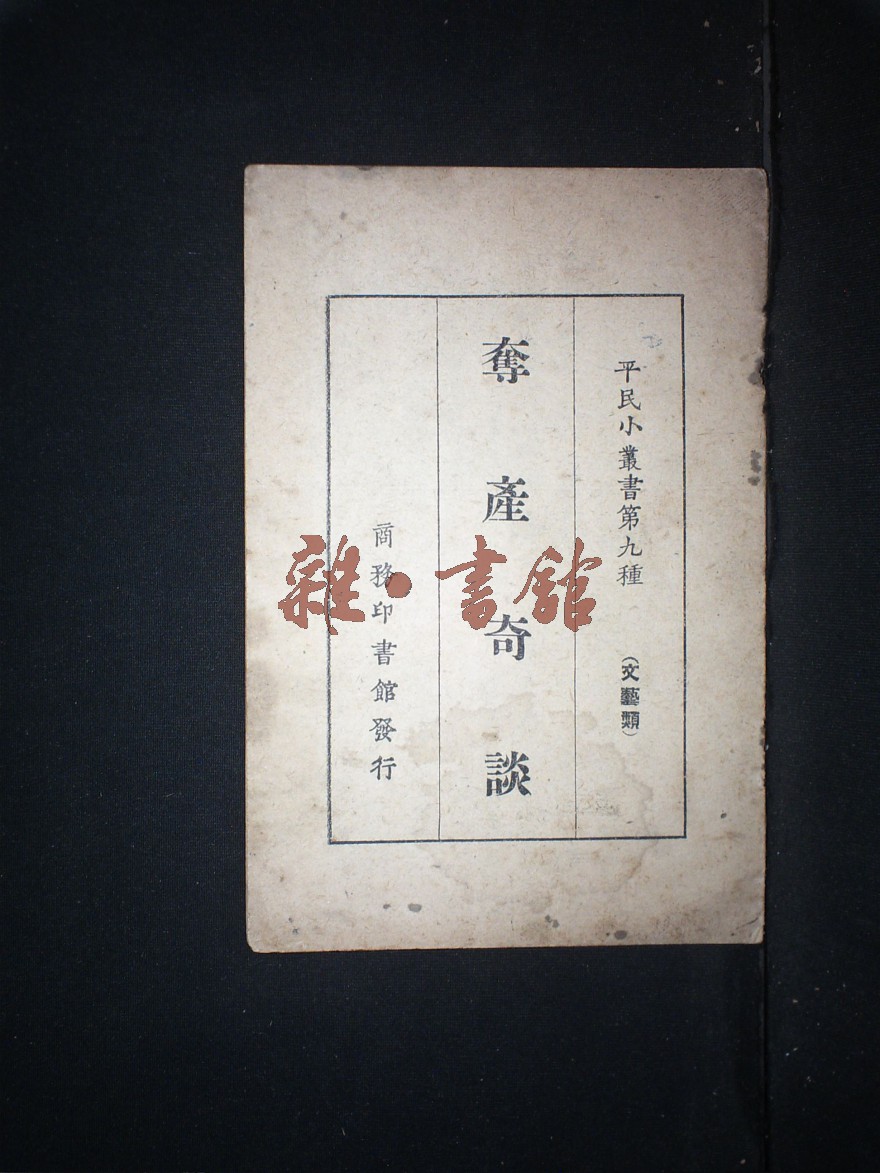 平民小叢書第九種 (文藝類)
奪產奇談
商務印書館發行
雜·書館